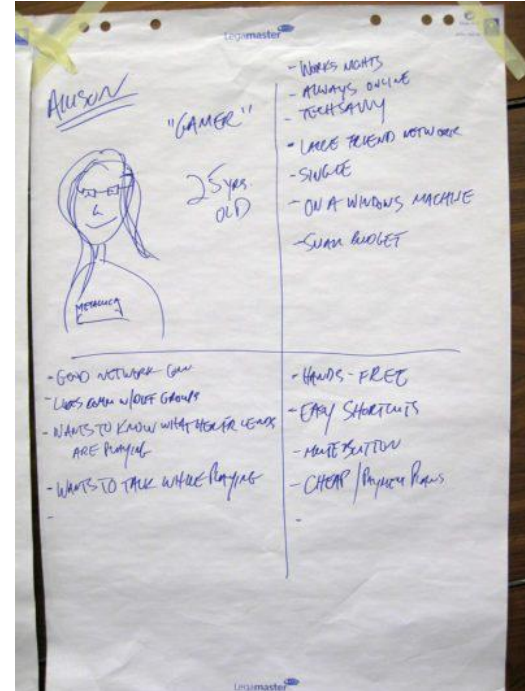 Legamaster
ALLISON
"GAMER"
25 yrs.
OLD
METALLICA
- WORKS NIGHTS
- ALWAYS ONLINE
- TECHSAVVY
- LARGE FRIEND NETWORK
- SINGLE
- ON A WINDOWS MACHINE
- SMALL BUDGET
- GOOD NETWORK CONN
- LIKES COMM W/DIFF GROUPS
- WANTS TO KNOW WHAT HER FRIENDS
ARE PLAYING
- WANTS TO TALK WHILE PLAYING
-
- HANDS-FREE
- EASY SHORTCUTS
- MUTE BUTTON
- CHEAP / PAYMENT PLANS
-
Legamaster